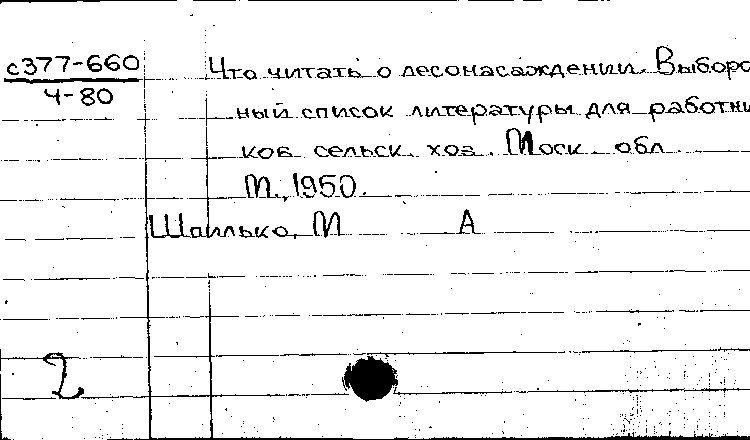 с377-660
Ч-80
Что читать о лесонасаждении. Выбороч
ный список литературы для работни
ков сельск. хоз. Моск. обл.
М., 1950.
Шаилько, М А
2